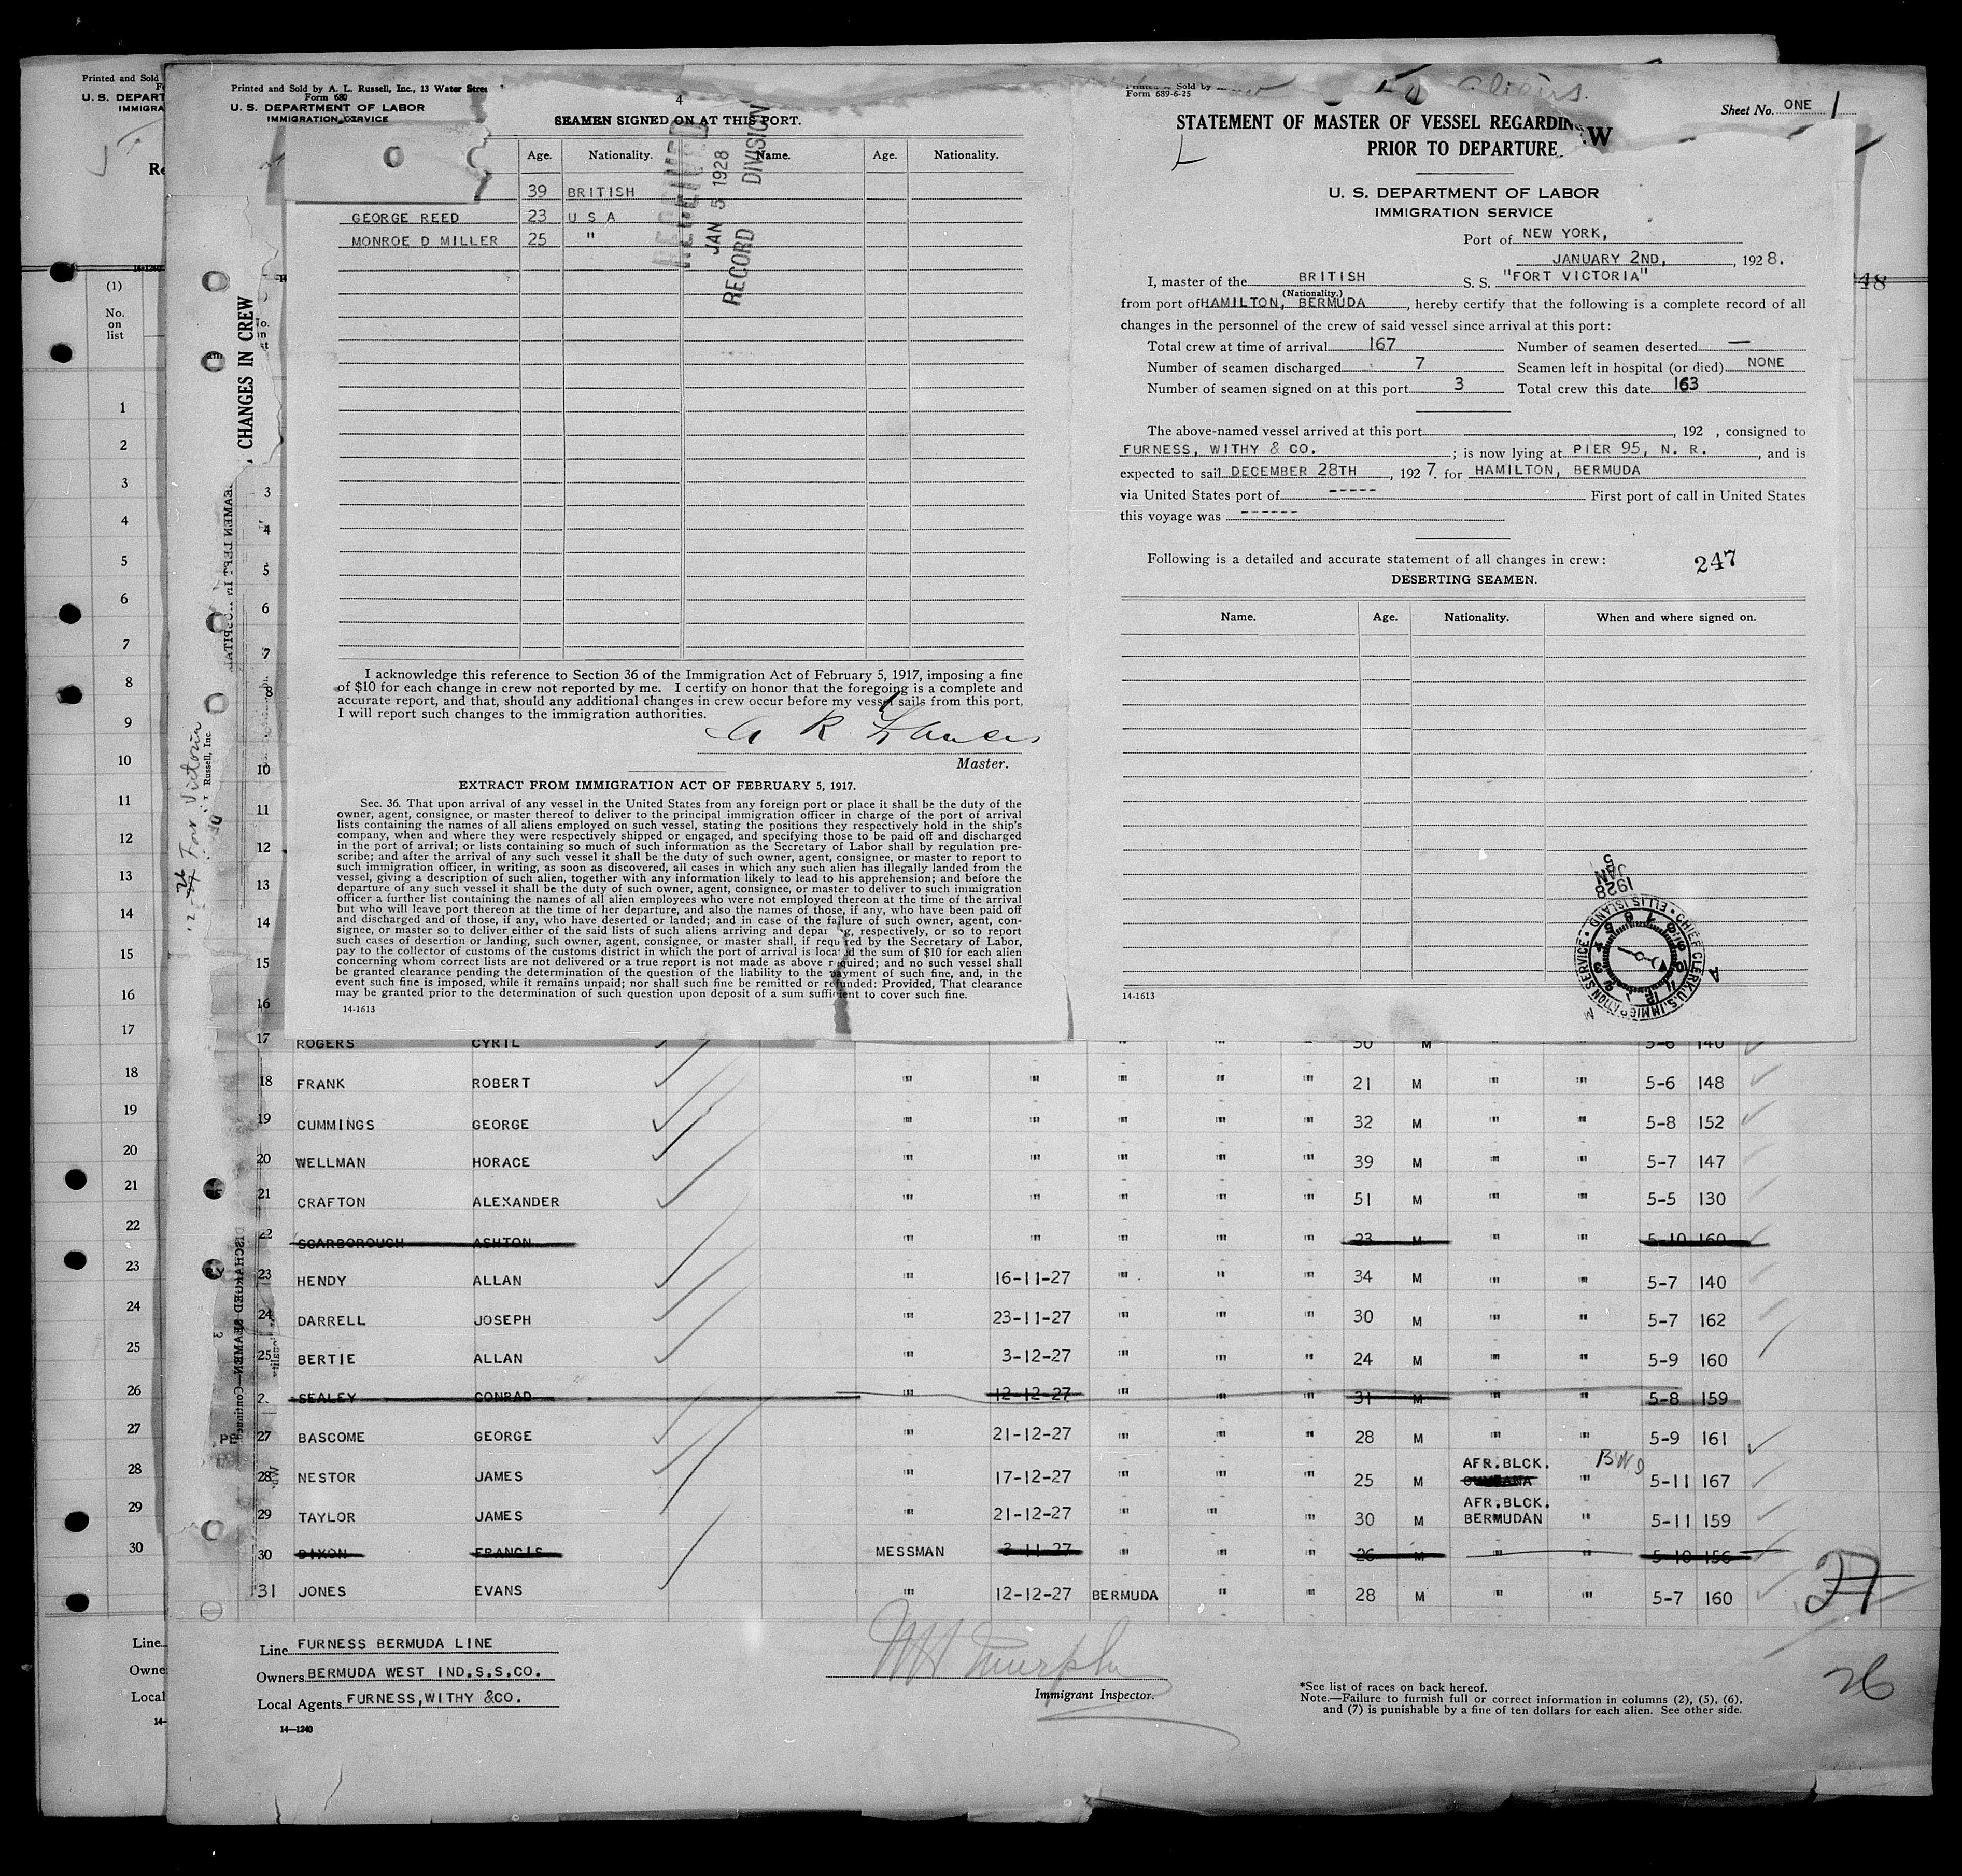 Printed and Sold
U. S. DEPART
IMMIGRA
(1)
No.
on
list
1
2
3
4
5
6
7
8
9
10
11
12
13
14
15
16
17
18
19
20
21
22
23
24
25
26
27
28
29
30
Line
Owne
Local
14-
Printed and Sold by A. L. Russell, Inc., 13 Water Stree
Form 680
U. S. DEPARTMENT OF LABOR
IMMIGRATION SERVICE
CHANGES IN CREW
Fort Victoria
Russell, Inc.
DISCHARGED SEAMEN—Continued
4
SEAMEN SIGNED ON AT THIS PORT.
Age. Nationality. Name. Age. Nationality.
39 BRITISH
GEORGE REED 23 U S A
MONROE D MILLER 25 "
RECEIVED
JAN 5 1928
RECORD DIVISION
I acknowledge this reference to Section 36 of the Immigration Act of February 5, 1917, imposing a fine
of $10 for each change in crew not reported by me. I certify on honor that the foregoing is a complete and
accurate report, and that, should any additional changes in crew occur before my vessel sails from this port,
I will report such changes to the immigration authorities.
A R Francis
Master.
EXTRACT FROM IMMIGRATION ACT OF FEBRUARY 5, 1917.
Sec. 36. That upon arrival of any vessel in the United States from any foreign port or place it shall be the duty of the
owner, agent, consignee, or master thereof to deliver to the principal immigration officer in charge of the port of arrival
lists containing the names of all aliens employed on such vessel, stating the positions they respectively hold in the ship's
company, when and where they were respectively shipped or engaged, and specifying those to be paid off and discharged
in the port of arrival; or lists containing so much of such information as the Secretary of Labor shall by regulation pre-
scribe; and after the arrival of any such vessel it shall be the duty of such owner, agent, consignee, or master to report to
such immigration officer, in writing, as soon as discovered, all cases in which any such alien has illegally landed from the
vessel, giving a description of such alien, together with any information likely to lead to his apprehension; and before the
departure of any such vessel it shall be the duty of such owner, agent, consignee, or master to deliver to such immigration
officer a further list containing the names of all alien employees who were not employed thereon at the time of the arrival
but who will leave port thereon at the time of her departure, and also the names of those, if any, who have been paid off
and discharged and of those, if any, who have deserted or landed; and in case of the failure of such owner, agent, con-
signee, or master so to deliver either of the said lists of such aliens arriving and depar g, respectively, or so to report
such cases of desertion or landing, such owner, agent, consignee, or master shall, if requ ed by the Secretary of Labor,
pay to the collector of customs of the customs district in which the port of arrival is locat d the sum of $10 for each alien
concerning whom correct lists are not delivered or a true report is not made as above r quired; and no such vessel shall
be granted clearance pending the determination of the question of the liability to the payment of such fine, and, in the
event such fine is imposed, while it remains unpaid; nor shall such fine be remitted or refunded: Provided, That clearance
may be granted prior to the determination of such question upon deposit of a sum sufficient to cover such fine.
14-1613
Sold by
Form 689-6-25
aliens.
Sheet No. ONE 1
STATEMENT OF MASTER OF VESSEL REGARDING W
PRIOR TO DEPARTURE.
U. S. DEPARTMENT OF LABOR
IMMIGRATION SERVICE
Port of NEW YORK,
JANUARY 2ND, , 1928.
I, master of the BRITISH S. S. "FORT VICTORIA"
(Nationality.)
from port of HAMILTON, BERMUDA, hereby certify that the following is a complete record of all
changes in the personnel of the crew of said vessel since arrival at this port:
Total crew at time of arrival 167 Number of seamen deserted —
Number of seamen discharged 7 Seamen left in hospital (or died) NONE
Number of seamen signed on at this port 3 Total crew this date 163
The above-named vessel arrived at this port , 192 , consigned to
FURNESS, WITHY & CO. ; is now lying at PIER 95, N. R. , and is
expected to sail DECEMBER 28TH , 1927. for HAMILTON, BERMUDA
via United States port of ----- First port of call in United States
this voyage was ------
Following is a detailed and accurate statement of all changes in crew:
247
DESERTING SEAMEN.
Name. Age. Nationality. When and where signed on.
1928 JAN 5
CHIEF CLERK, U.S. IMMIGRATION SERVICE • ELLIS ISLAND •
14-1613
17 ROGERS CYRIL " " " " 50 M 5-6 140
18 FRANK ROBERT " " " " " 21 M " " 5-6 148
19 CUMMINGS GEORGE " " " " " 32 M " " 5-8 152
20 WELLMAN HORACE " " " " " 39 M " " 5-7 147
21 CRAFTON ALEXANDER " " " " " 51 M " " 5-5 130
22 SCARBOROUGH ASHTON " " " " " 23 M " " 5-10 160
23 HENDY ALLAN " 16-11-27 " " " 34 M " " 5-7 140
24 DARRELL JOSEPH " 23-11-27 " " " 30 M " " 5-7 162
25 BERTIE ALLAN " 3-12-27 " " " 24 M " " 5-9 160
2. SEALEY CONRAD " 12-12-27 " " " 31 M " " 5-8 159
27 BASCOME GEORGE " 21-12-27 " " " 28 M " " 5-9 161
28 NESTOR JAMES " 17-12-27 " " " 25 M AFR.BLCK. " BWI 5-11 167
29 TAYLOR JAMES " 21-12-27 " " " 30 M AFR.BLCK. BERMUDAN " 5-11 159
30 DIXON FRANCIS MESSMAN 3-11-27 " " " 26 M " " 5-10 156
31 JONES EVANS " 12-12-27 BERMUDA " " 28 M " " 5-7 160
27
26
Line FURNESS BERMUDA LINE
Owners BERMUDA WEST IND.S.S.CO.
Local Agents FURNESS,WITHY &CO.
14—1240
Immigrant Inspector.
*See list of races on back hereof.
Note.—Failure to furnish full or correct information in columns (2), (5), (6),
and (7) is punishable by a fine of ten dollars for each alien. See other side.